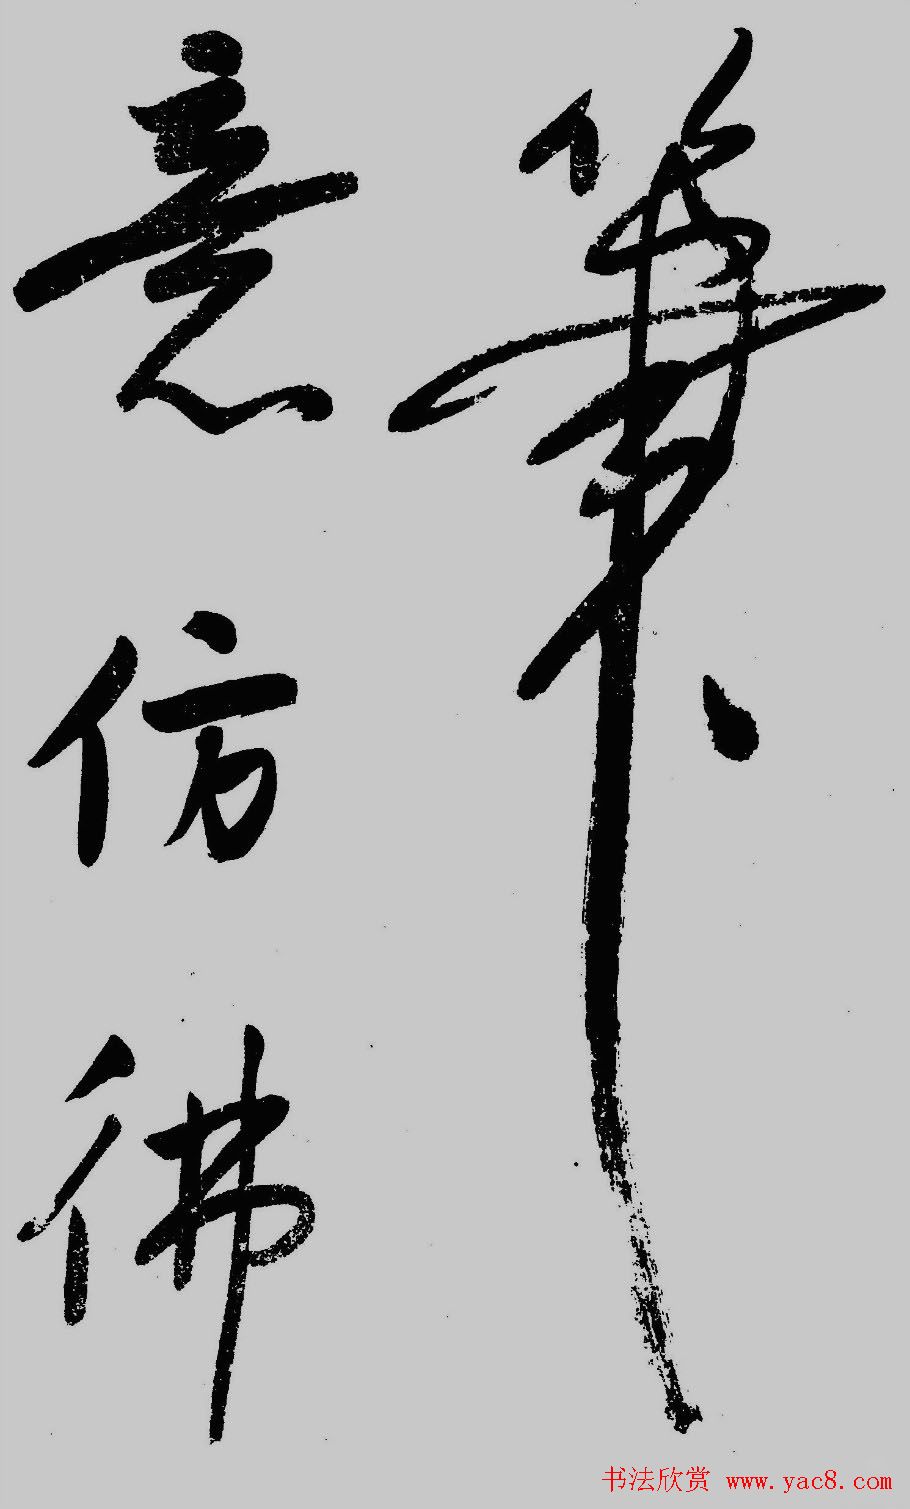 意仿佛
书法欣赏 www.yac8.com